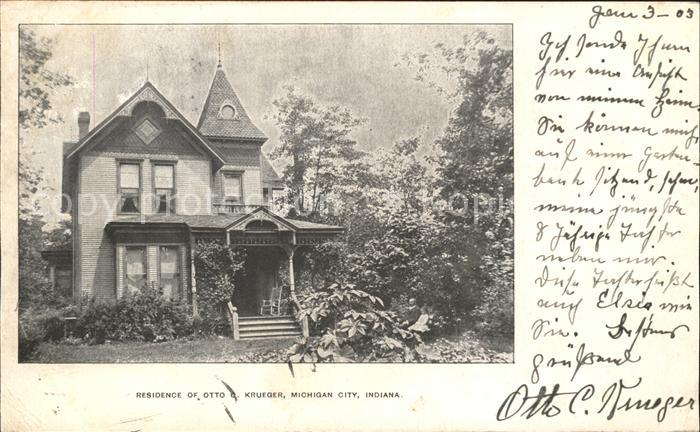 Jan 3 - 03
Ich sende Ihnen
hier eine Ansicht
von meinem Heim,
Sie können mich
auf einer Garten
bank sitzend, sehen
meine jüngste
8 Jährige Tochter
neben mir.
Diese Tochter heißt
auch Elsa wie
Sie. Bestens
grüßend
Otto C. Krueger
RESIDENCE OF OTTO C. KRUEGER, MICHIGAN CITY, INDIANA.